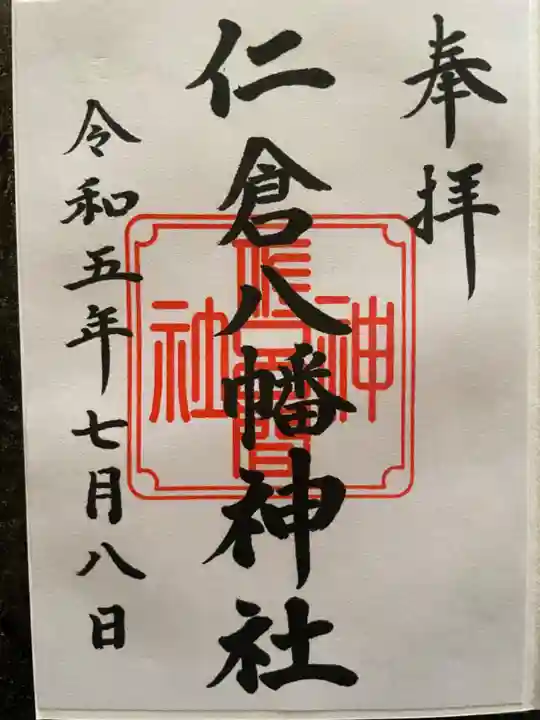 奉拝
仁倉八幡神社
神
社
令和五年七月八日